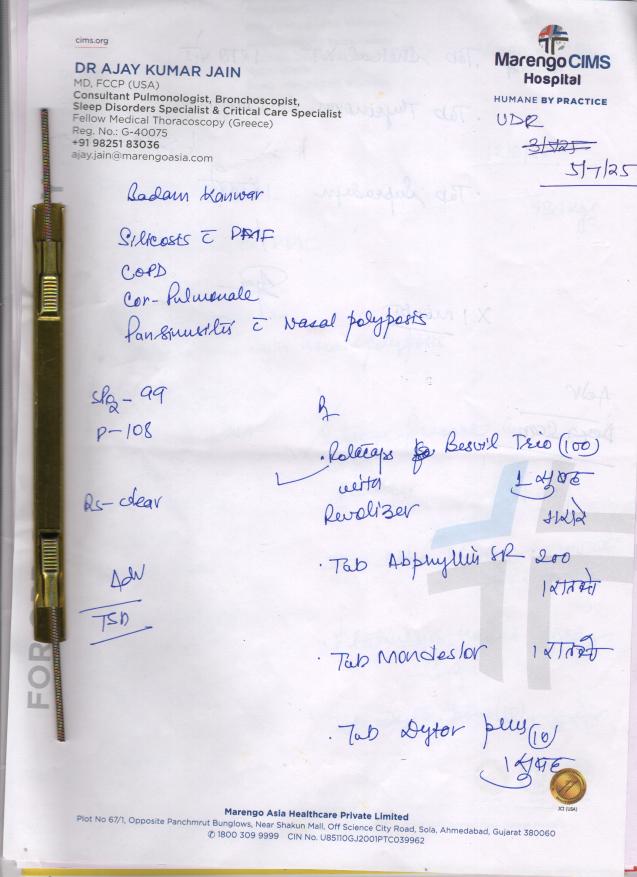 cims.org
DR AJAY KUMAR JAIN
MD, FCCP (USA)
Consultant Pulmonologist, Bronchoscopist,
Sleep Disorders Specialist & Critical Care Specialist
Fellow Medical Thoracoscopy (Greece)
Reg. No.: G-40075
+91 98251 83036
ajay.jain@marengoasia.com
Marengo CIMS
Hospital
HUMANE BY PRACTICE
UDR
3/5/25
5/7/25
Badam Kanwar
Silicosis c̄ PMF
COPD
Cor-Pulmonale
Pansinusitis c̄ Nasal polyposis
SPO2 - 99
P-108
Rs-clear
Adv
TSD
Rx
. Rotacaps Besvil Trio (100)
1 सुबह
with
Revolizer
. Tab Abphyllin SR 200
1 रात को
. Tab Mondeslor 1 रात को
. Tab Dytor plus (10)
1 सुबह
FOR
JCI (USA)
Marengo Asia Healthcare Private Limited
Plot No 67/1, Opposite Panchmrut Bunglows, Near Shakun Mall, Off Science City Road, Sola, Ahmedabad, Gujarat 380060
✆ 1800 309 9999 CIN No. U85110GJ2001PTC039962